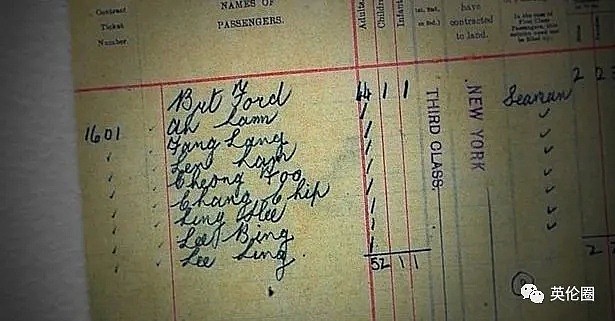 Contract Ticket Number.
NAMES OF PASSENGERS.
Adults
Children
Infants
have contracted to land.
In the case of First Class Passengers, this column need not be filled up.
But Ford 44 1 1 Seaman 2
1601 Ah Lam
Fang Lang
Len Lam
Cheong Foo
Chang Chip
Ling Hee
Lee Bing
Lee Ling
52 1 1
THIRD CLASS.
NEW YORK
英伦圈